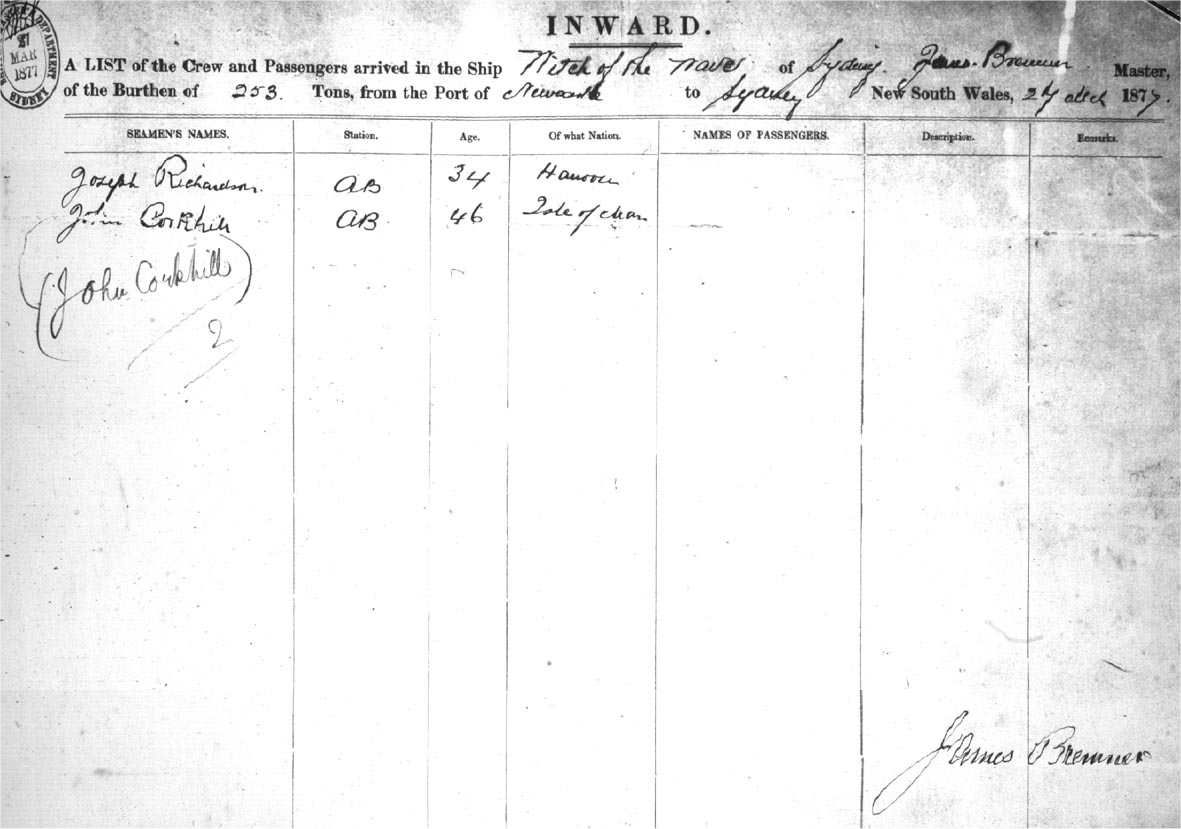 27
MAR
1877
DEPARTMENT
SIDNEY
INWARD.
A LIST of the Crew and Passengers arrived in the Ship Witch of the Waves of Sydney, James Bremner Master,
of the Burthen of 253. Tons, from the Port of Newcastle to Sydney New South Wales, 27 Mch 1877.
SEAMEN'S NAMES. Station. Age. Of what Nation. NAMES OF PASSENGERS. Description. Remarks.
Joseph Richardson. AB 34 Hanover
John Corkhill AB 46 Isle of Man
(John Corkhill)
2
James Bremner